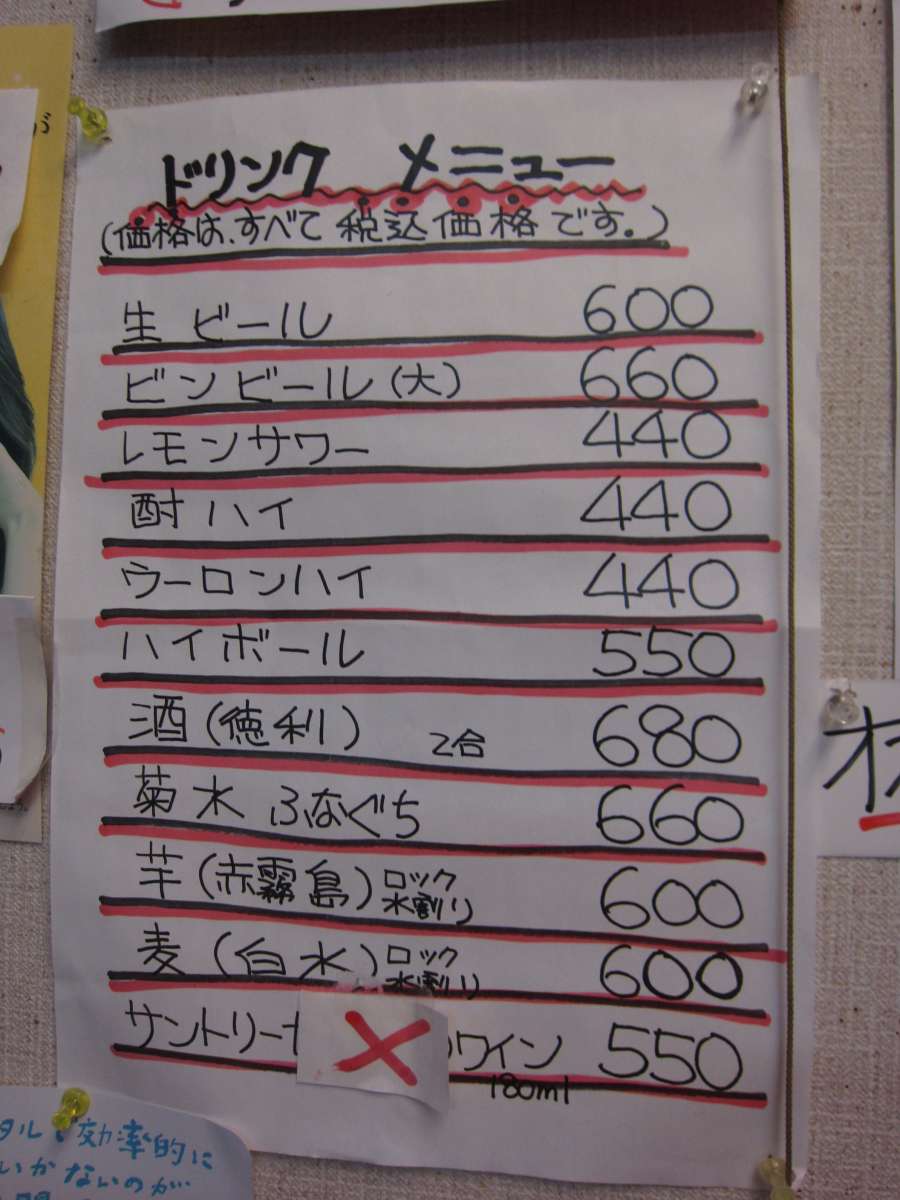 ドリンク メニュー
(価格は、すべて税込価格です。)
生ビール 600
ビンビール(大) 660
レモンサワー 440
酎ハイ 440
ウーロンハイ 440
ハイボール 550
酒(徳利) 2合 680
菊水 ふなぐち 660
芋(赤霧島) ロック 水割り 600
麦(白水) ロック 水割り 600
サントリー ワイン 550
180ml
効率的に
いかないのが